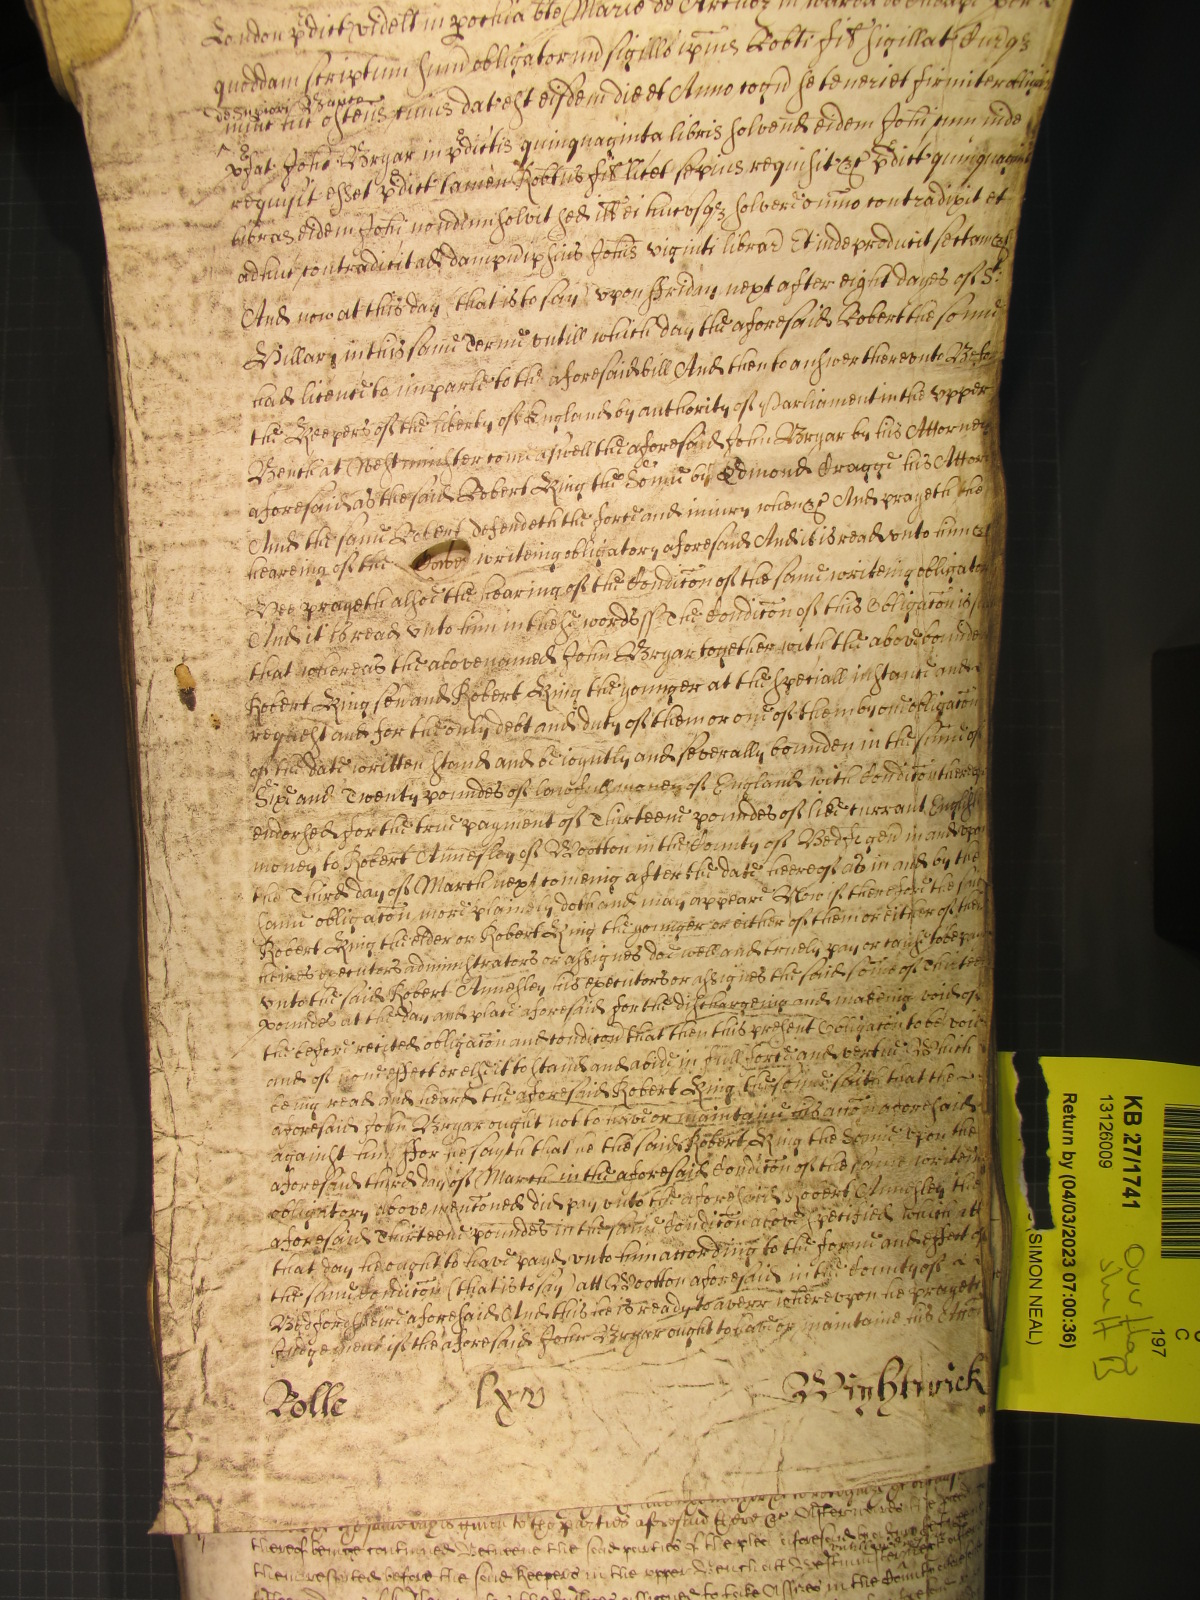 London pdict videlt in pochia bte Marie de Arcubz in Warda de
quoddam scriptum suum obligatorium sigillo ipius Robti fil sigillat
de Upper Banco
hic ostens cuius dat est eisdem die et Anno cogn se teneri et firmiter
pfat Johi Bryar in pdictis quinquaginta libris solvend eidem Johi cum inde
requisit esset pdict tamen Robtus fil licet sepius requisit &c pdict quinquagint
libras eidem Johi nondum solvit sed ill ei hucusqz solvere omino contradixit et
adhuc contradicit ad dampnu ipius Johis viginti librar Et inde producit sectam &c
And now at this day that is to say upon Friday next after eight dayes of St
Hillary in this same Terme untill which day the aforesaid Robert the sonne
had licence to imparle to the aforesaid bill And then to answer thereunto Befo
the Keepers of the liberty of England by authority of Parliament in the upper
Bench at Westminster come aswell the aforesaid John Bryar by his Attorney
aforesaid as the said Robert King the Sonne by Edmond Cragge his Attor
And the same Robert defendeth the force and iniury when &c And prayeth the
heareing of the writeing obligatory aforesaid And it is read unto him &c
Hee prayeth alsoe the hearing of the Condicon of the same writeing obligator
And it is read unto him in these words ss The Condicon of this Obligacon is
that whereas the abovenamed John Bryar together with the abovebounden
Robert King sen and Robert King the younger at the speciall instance and
request and for the only debt and duty of them or one of them by one obligacon
of the date written stand and be ioyntly and severally bounden in the summe of
Sixe and Twenty poundes of lawfull money of England with Condicon thereof
endorsed for the true payment of Thirteene poundes of like currant English
money to Robert Annesley of Wootton in the County of Bedf gen in and upon
the Third day of March next comeing after the date hereof as in and by the
same obligacon more plainely doth and may appeare Now if therefore the said
Robert King the elder or Robert King the younger or either of them or either of their
heires executors administrators or assignes doe well and truely pay or cause to be paid
unto the said Robert Annesley his executors or assignes the said some of Thirteene
poundes at the day and place aforesaid for the dischargeing and makeing void of
the before recited obligacon and condicon that then this present Obligacon to be void
and of none effect or els it to stand and abide in full force and vertue Which
being read and heard the aforesaid Robert King the sonne saith that the
aforesaid John Bryar ought not to have or maintaine his accon aforesaid
against him For he sayth that he the said Robert King the Sonne upon the
aforesaid third day of March in the aforesaid Condicon of the same writeing
obligatory abovementoned did pay unto the aforesaid Robert Annesley the
aforesaid Thirteene poundes in the same Condicon above specified which att
that day he ought to have payd unto him according to the forme and effect of
the same Condicon (that is to say) att Wootton aforesaid in the County of
Bedford aforesaid And this he is ready to averr whereupon he prayeth
Judgement if the aforesaid John Bryar ought to have or maintaine his Accon
Rolle lxv Wightwick
same day is given to the parties aforesaid there &c Afterwards the
thereof beinge continued Betweene the said parties of the plea aforesaid
then respited before the said Keepers in the upper Bench att Westminster
assigned to take Assizes in the Countie aforesaid
KB 27/1741
13126009
Return by (04/03/2023 07:00:36)
(SIMON NEAL)
197
C